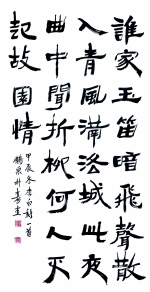 誰家玉笛暗飛聲散
入春風滿洛城此夜
曲中聞折柳何人不
起故園情
甲辰冬李白詩一首